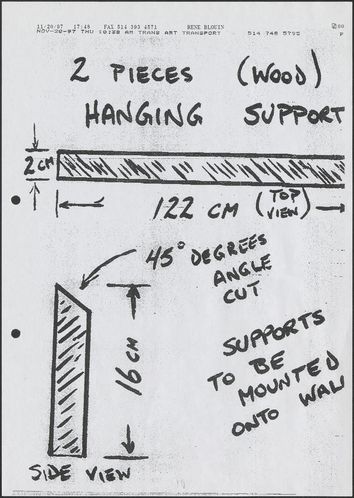 11/20/97 17:48 FAX 514 393 4571 RENE BLOUIN
NOV-20-97 THU 10:28 AM TRANS ART TRANSPORT 514 748 5795 P
2 PIECES (WOOD)
HANGING SUPPORT
2 CM
122 CM (TOP VIEW)
45° DEGREES
ANGLE
CUT
16 CM
SUPPORTS
TO BE
MOUNTED
ONTO WALL
SIDE VIEW